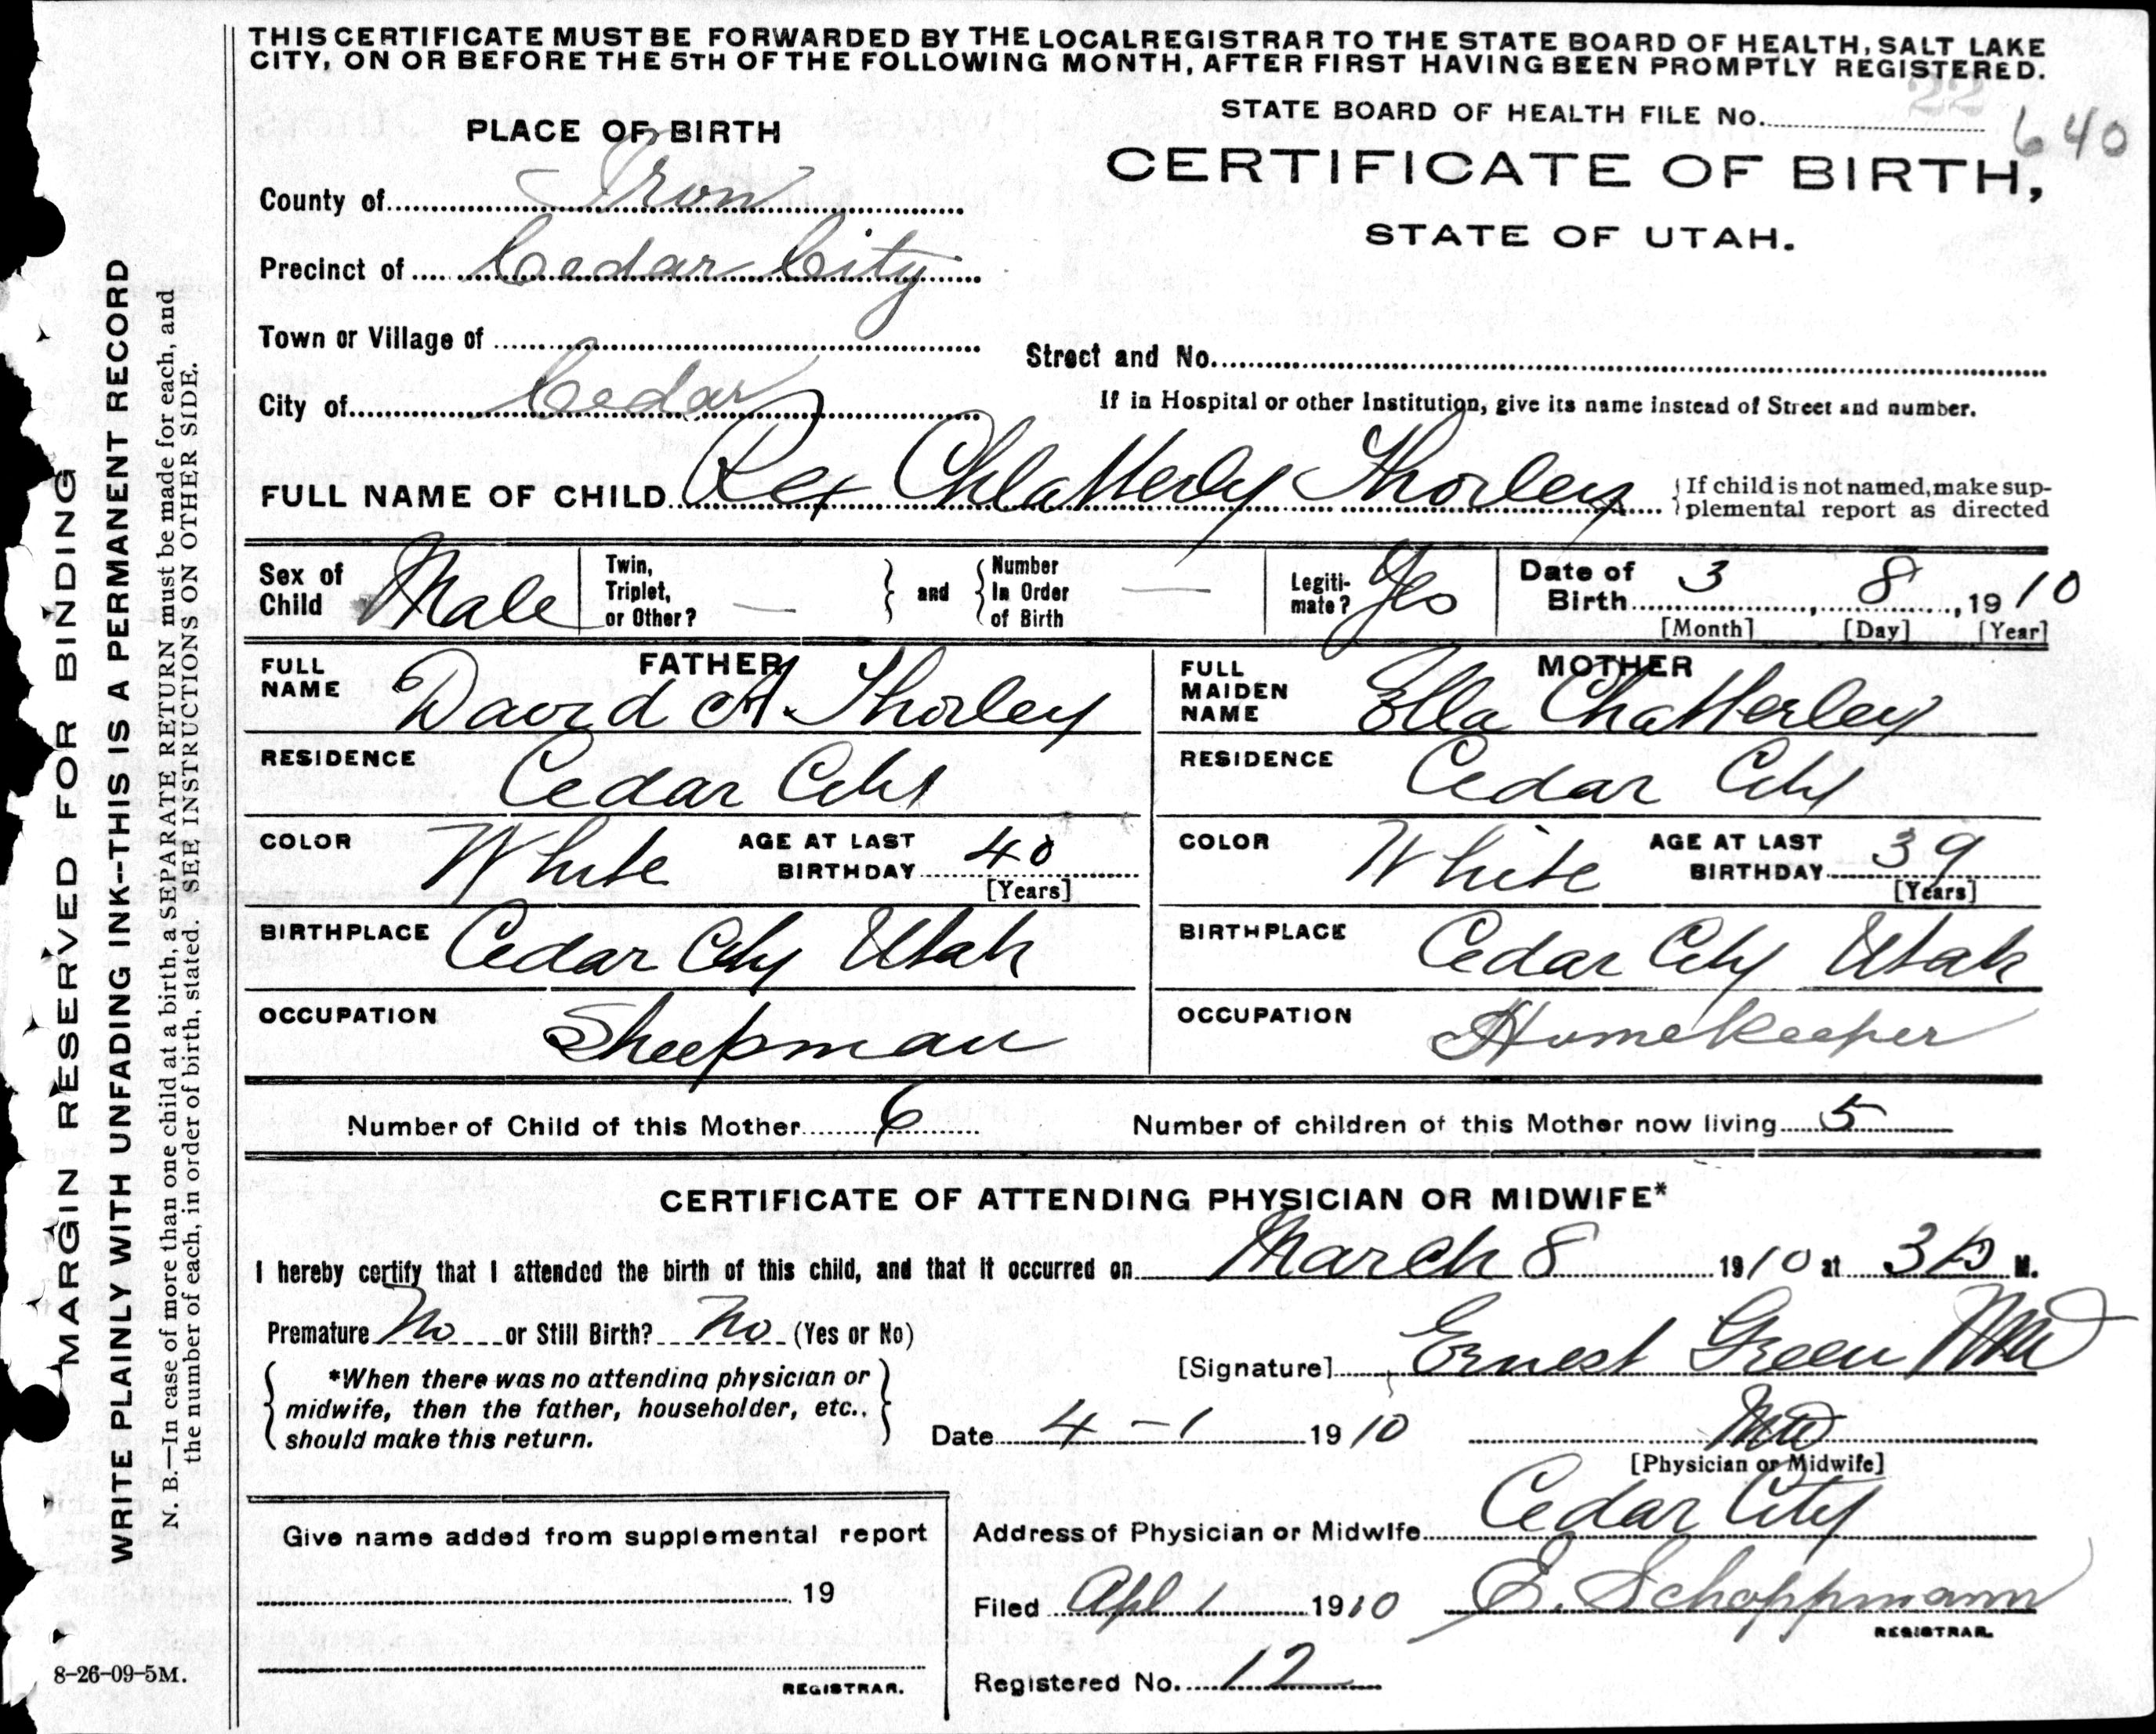 THIS CERTIFICATE MUST BE FORWARDED BY THE LOCAL REGISTRAR TO THE STATE BOARD OF HEALTH, SALT LAKE
CITY, ON OR BEFORE THE 5TH OF THE FOLLOWING MONTH, AFTER FIRST HAVING BEEN PROMPTLY REGISTERED.
22
STATE BOARD OF HEALTH FILE No. 640
PLACE OF BIRTH
CERTIFICATE OF BIRTH,
STATE OF UTAH.
County of Iron
Precinct of Cedar City
Town or Village of
Street and No.
City of Cedar
If in Hospital or other Institution, give its name instead of Street and number.
FULL NAME OF CHILD Rex Chlatterly Thorley
If child is not named, make sup-
plemental report as directed
Sex of Child Male
Twin, Triplet, or Other? —
and
Number In Order of Birth —
Legiti-mate? Yes
Date of Birth 3, 8, 1910
[Month] [Day] [Year]
FATHER
FULL NAME David A. Thorley
RESIDENCE Cedar City
COLOR White AGE AT LAST BIRTHDAY 40
[Years]
BIRTHPLACE Cedar City Utah
OCCUPATION Sheepman
MOTHER
FULL MAIDEN NAME Ella Chatterley
RESIDENCE Cedar City
COLOR White AGE AT LAST BIRTHDAY 39
[Years]
BIRTHPLACE Cedar City Utah
OCCUPATION Homekeeper
Number of Child of this Mother 6 Number of children of this Mother now living 5
CERTIFICATE OF ATTENDING PHYSICIAN OR MIDWIFE*
I hereby certify that I attended the birth of this child, and that it occurred on March 8 1910 at 3 P M.
Premature No or Still Birth? No (Yes or No)
*When there was no attending physician or
midwife, then the father, householder, etc.,
should make this return.
[Signature] Ernest Green MD
Date 4 - 1 1910 MD
[Physician or Midwife]
Address of Physician or Midwife Cedar City
Give name added from supplemental report
19
REGISTRAR.
Filed Apl 1 1910 E. Schoppmann
REGISTRAR.
Registered No. 12
MARGIN RESERVED FOR BINDING
WRITE PLAINLY WITH UNFADING INK--THIS IS A PERMANENT RECORD
N. B.—In case of more than one child at a birth, a SEPARATE RETURN must be made for each, and
the number of each, in order of birth, stated. SEE INSTRUCTIONS ON OTHER SIDE.
8-26-09-5M.